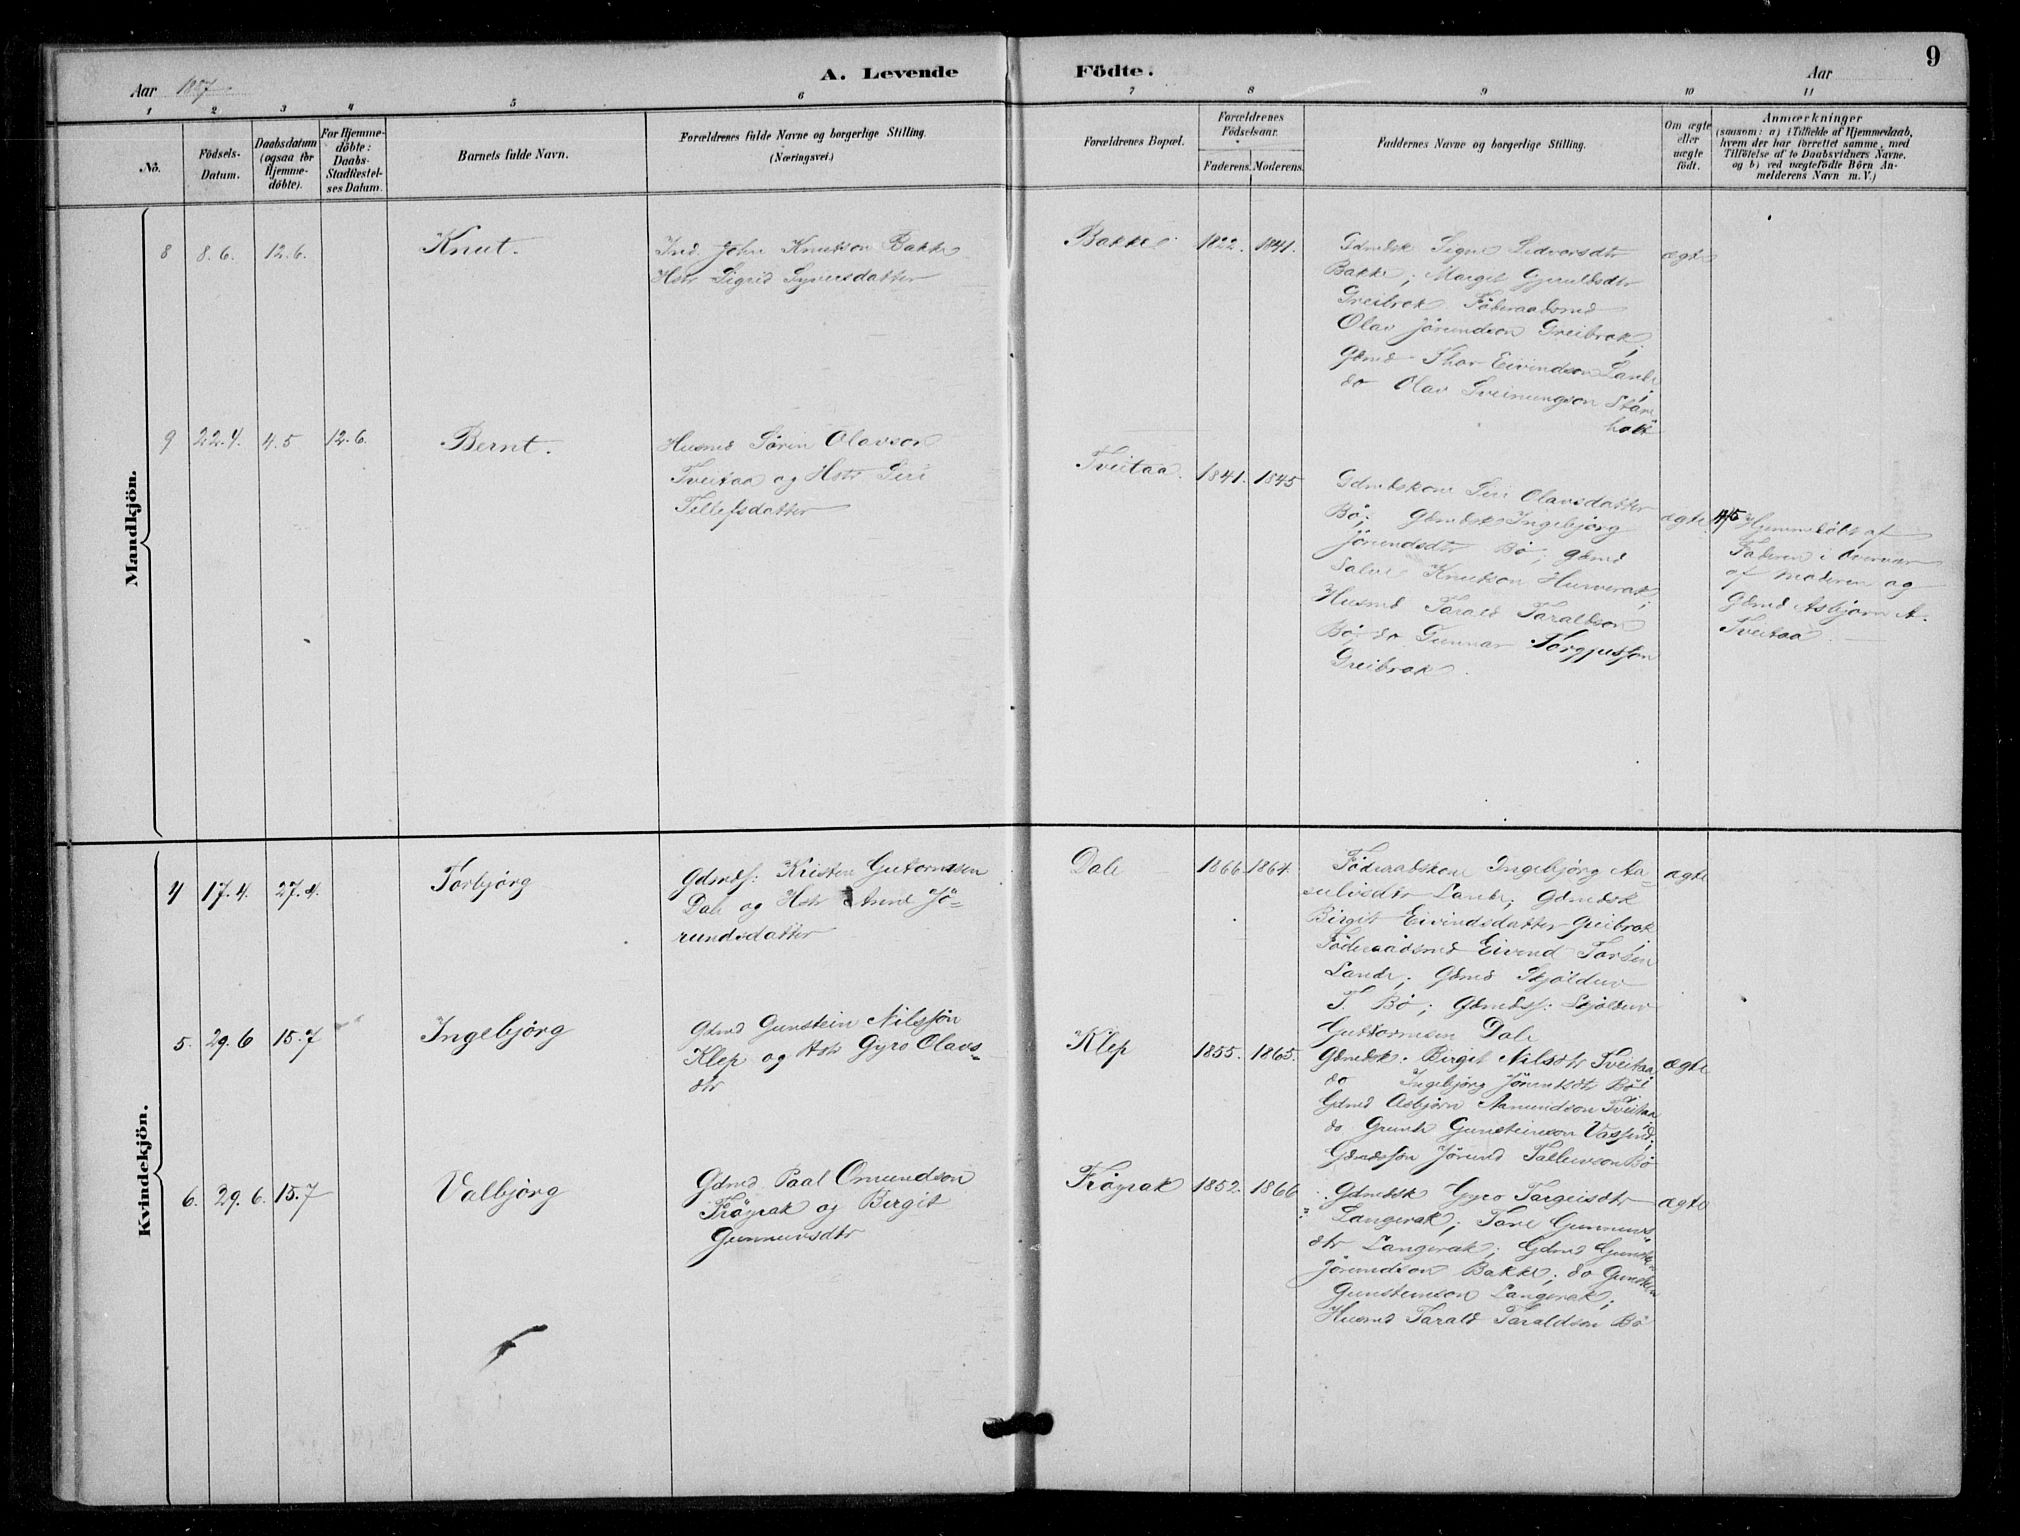 9
Aar 1887.
A. Levende Födte.
Aar
1 2 3 4 5 6 7 8 9 10 11
No.
Födsels-Datum.
Daabsdatum (ogsaa for Hjemmedöbte).
For Hjemmedöbte: Daabs-Stadfestelses Datum.
Barnets fulde Navn.
Forældrenes fulde Navne og borgerlige Stilling.
(Næringsvei.)
Forældrenes Bopæl.
Forældrenes Födselsaar.
Faderens. Moderens.
Faddernes Navne og borgerlige Stilling.
Om ægte eller uægte födt.
Anmærkninger
(saasom: a) i Tilfælde af Hjemmedaab,
hvem der har forrettet samme, med
Tilföielse af to Daabsvidners Navne,
og b) ved uægtefödte Börn An-
melderens Navn m. V.)
Mandkjön.
8 8.6. 12.6.
Knut.
Ind. John Knutson Bakke
Hstr Sigrid Syversdatter
Bakke.
1822. 1841.
Gdmdsk Signe Sedvorsdtr
Bakke; Margit Gjeruldsdtr
Greibrok Föderaadsmd
Olav Jörundson Greibrok;
Gdmd Thor Eivindson Lande;
do Olav Sveinungson Stare
hole
ægte
9 22.4. 4.5 12.6.
Bernt.
Husmd Sörin Olavson
Tveitaa og Hstr Siri
Tellefsdatter
Tveitaa.
1841. 1845
Gdmdskone Siri Olavsdatter
Bö; Gdmdsk Ingebjörg
Jörundsdtr Bö; Gdmd
Salve Knutson Hurverak;
Husmd Tarald Taraldson
Bö; do Gunnar Torgjusson
Greibrok.
ægte.
4/5 Hjemmedöbt af
Faderen i Overvær
af Moderen og
Gdmd Asbjörn A.
Tveitaa.
Kvindekjön.
4 17.4. 27.4.
Torbjörg
Gdmdsf: Kristen Gutormsen
Dale og Hstr Anne Jö=
rundsdatter
Dale
1866. 1864.
Föderaadskone Ingebjörg Aa=
sulvsdtr Lande; Gdmdsk
Birgit Eivindsdatter Greibrok;
Föderaadsmd Eivind Torsen
Lande; Gdmd Skjöldur
T. Bö; Gdmdsf: Skjöldur
Guttormsen Dale
ægte
5. 29.6 15.7
Ingebjörg
Gdmd Gunstein Nilssön
Klep og Hstr Gyro Olavs=
dtr
Klep
1855. 1865.
Gdmdsk. Birgit Nilsdtr Tveitaa;
do Ingebjörg Jörundsdtr Bö;
Gdmd Asbjörn Aamundson Tveitaa;
do Grunde Gunsteinson Vasend;
Gdmdssön Jörund Tallevson Bö
ægte
6. 29.6. 15.7
Valbjörg
Gdmd Paal Omundson
Fröyrak og Birgit
Gunnuvsdtr
Fröyrak
1852. 1866
Gdmdsk Gyro Targeisdtr
Langerak; Tore Gunnuvs=
dtr Langerak; Gdmd Gunstein
Jörundson Bakke; do Gunstein
Gunsteinson Langerak;
Husmd Tarald Taraldson Bö
ægte